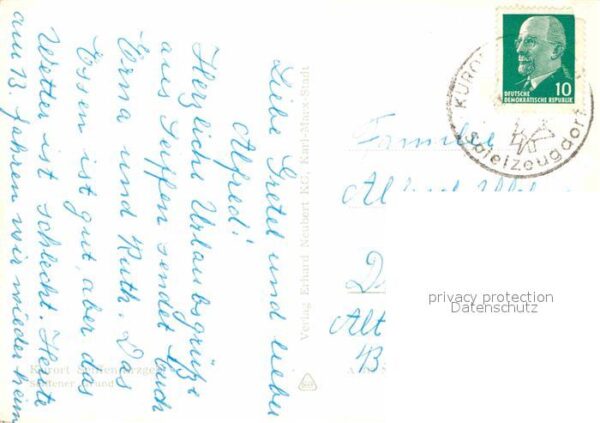 Liebe Gretel und lieber
Alfred!
Herzliche Urlaubsgrüße
aus Seiffen sendet Euch
Erna und Ruth. Das
Essen ist gut, aber das
Wetter ist schlecht. Heute
am 13. fahren wir wieder heim
Kurort Seiffen/Erzgeb.
Seiffener Grund
Verlag Erhard Neubert KG, Karl-Marx-Stadt
DEUTSCHE
DEMOKRATISCHE REPUBLIK
10
KURORT
Spielzeugdorf
Familie
Alfred
D
Alt
privacy protection
Datenschutz